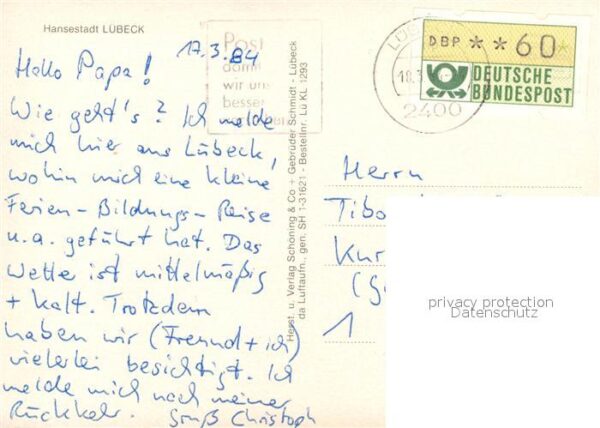 Hansestadt LÜBECK
17.3.84
Hallo Papa!
Wie geht's? Ich melde
mich hier aus Lübeck,
wohin mich eine kleine
Ferien-Bildungs-Reise
u.a. geführt hat. Das
Wetter ist mittelmäßig
+ kalt. Trotzdem
haben wir (Freund + ich)
vielerlei besichtigt. Ich
melde mich nach meiner
Rückkehr. Gruß Christoph
Post
damit
wir uns
besser
Herst. u. Verlag Schöning & Co + Gebrüder Schmidt - Lübeck
da Luftaufn., gen. SH 1-31621 - Bestellnr. Lü KL 1293
18.3.
2400
DBP **60*
DEUTSCHE
BUNDESPOST
Herrn
Tibo
Kur
1
privacy protection
Datenschutz